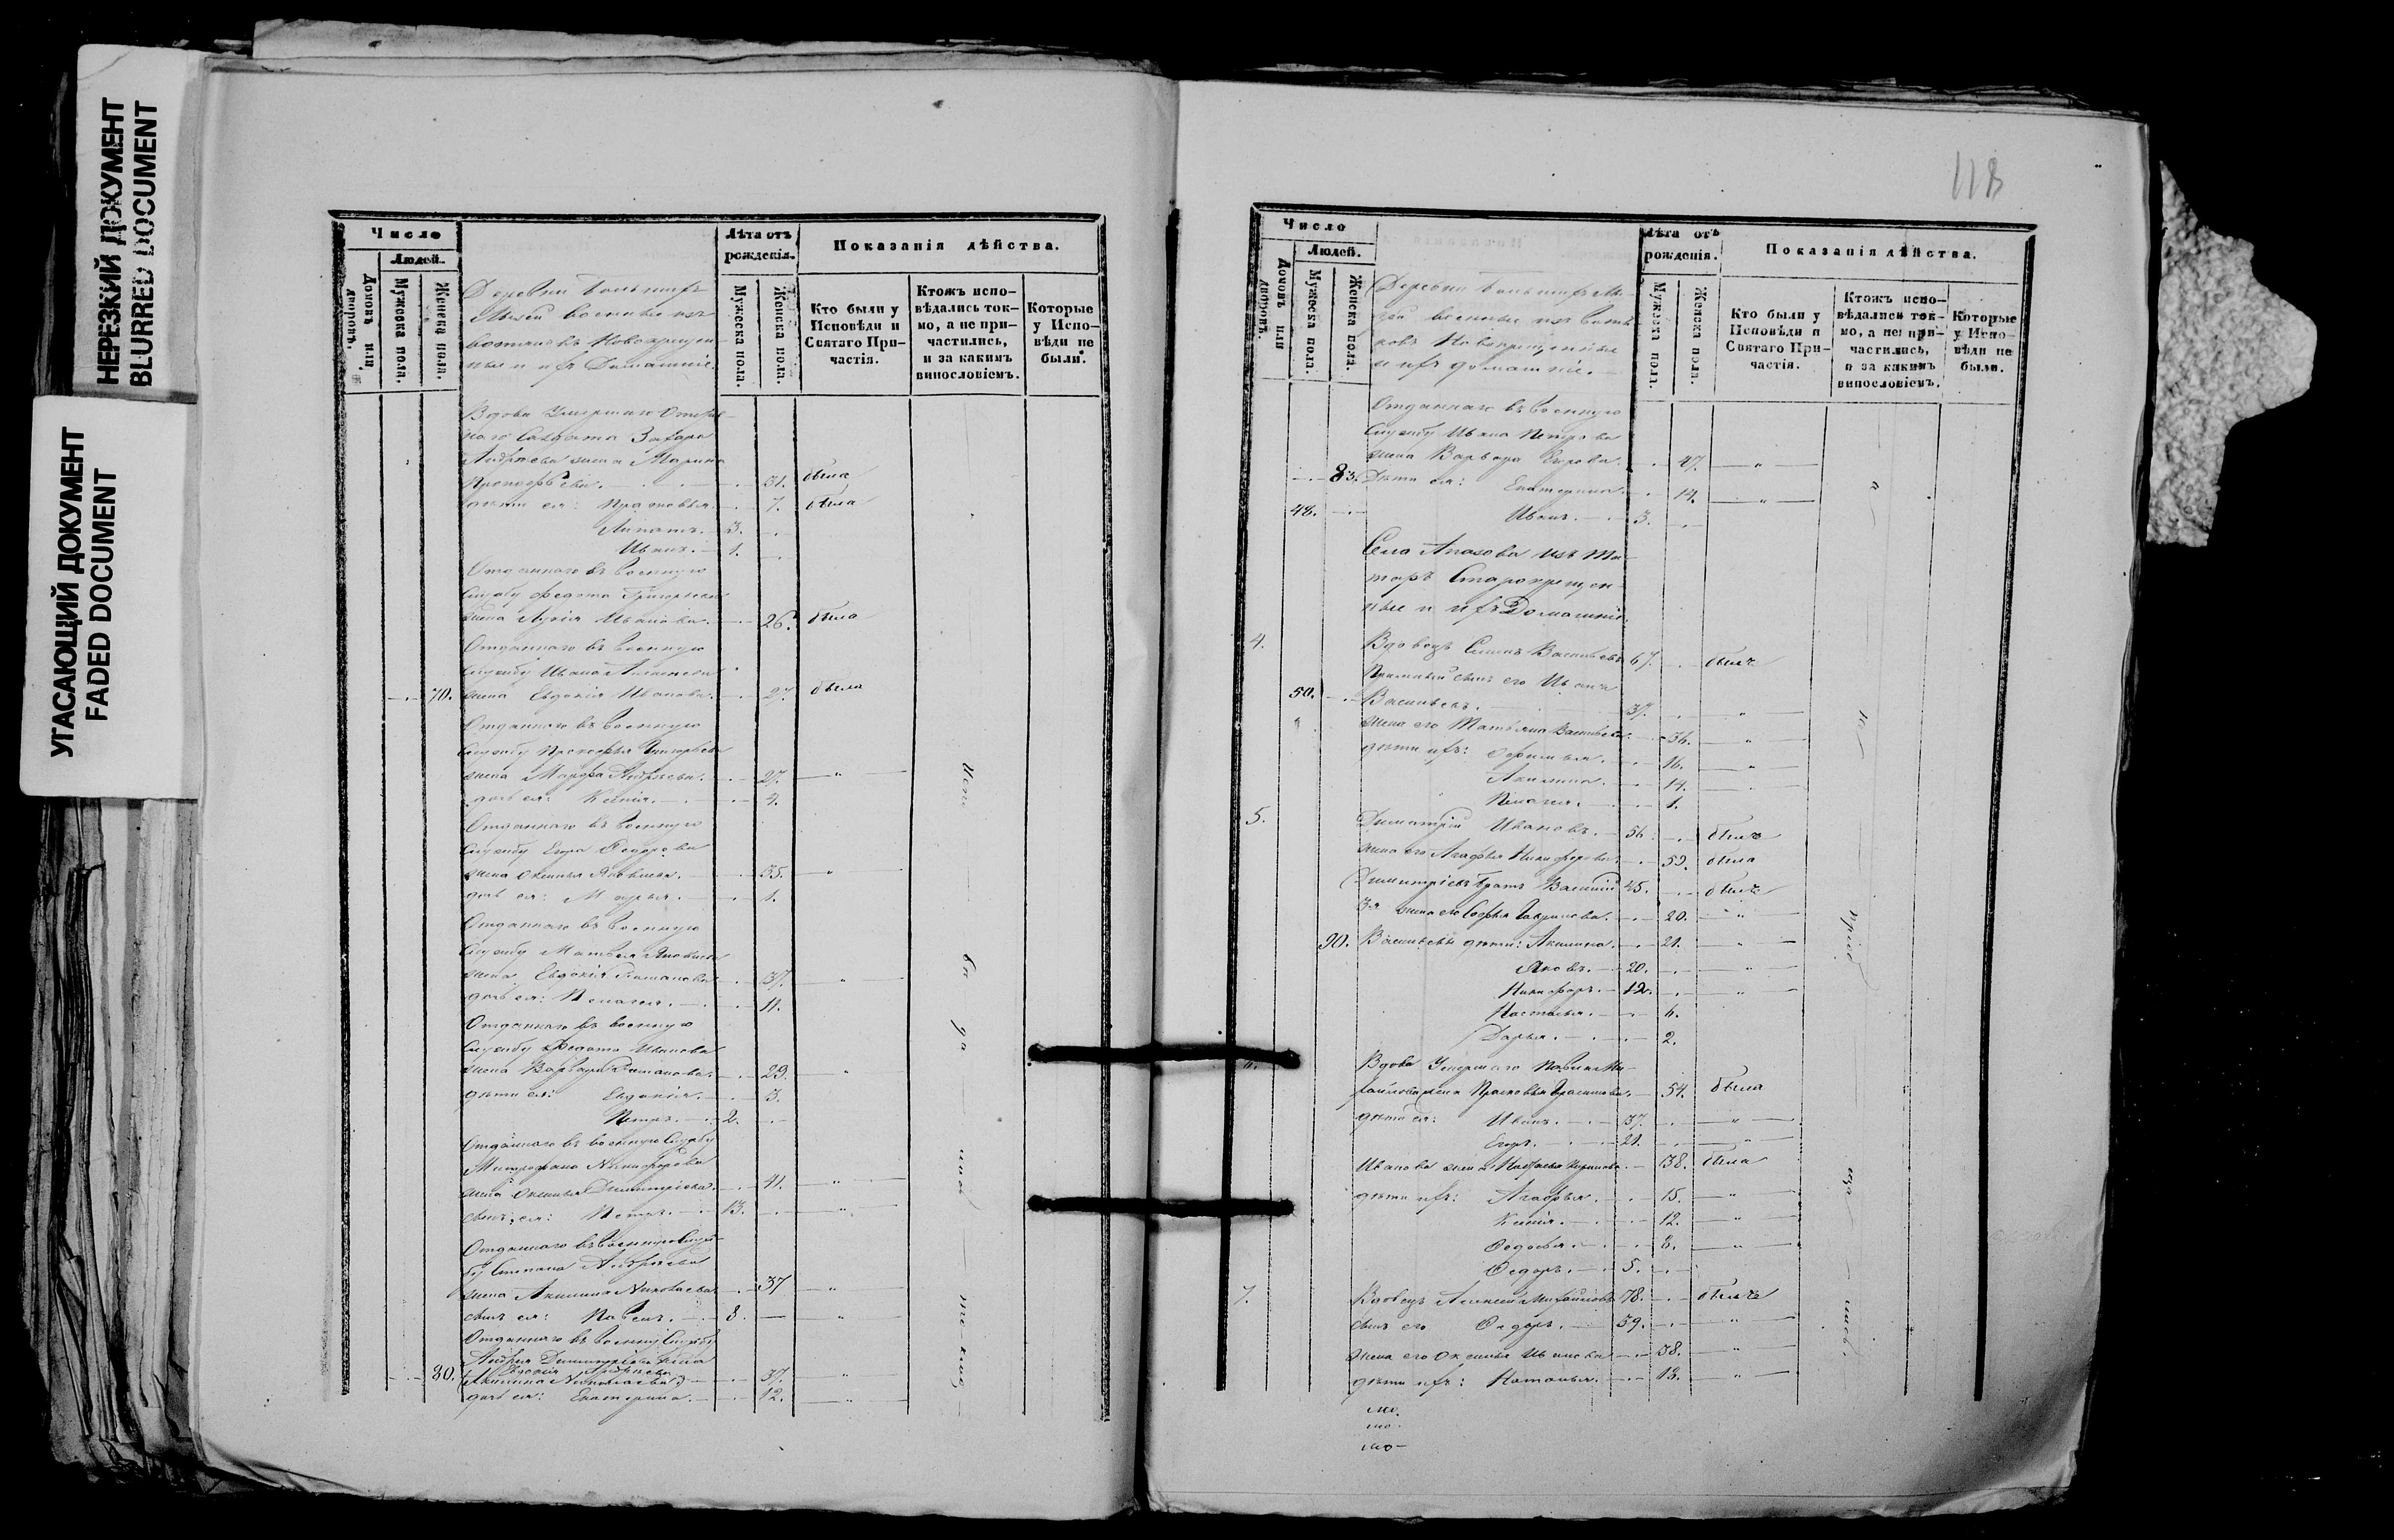 НЕРЕЗКИЙ ДОКУМЕНТ
BLURRED DOCUMENT
УГАСАЮЩИЙ ДОКУМЕНТ
FADED DOCUMENT
Число
Людей.
Домовъ или дворовъ.
Мужеска пола.
Женска пола.
Лѣта отъ рожденія.
Мужеска пола.
Женска пола.
Показанія дѣйства.
Кто были у Исповѣди и Святаго При-частія.
Ктожъ испо-вѣдались ток-мо, а не при-частились, и за какимъ винословіемъ.
Которые у Испо-вѣди не были.
Деревни
военные изъ
Новокрещен-
ные и ихъ Домашніе.
Вдова Умершаго
Солдата Захара
Андреева жена Марина
31. была
дѣти ея: Прасковья. 7. была
3.
Иванъ. 1.
Отданнаго въ военную
Службу Федота Григорьева
жена Иванова. 26. была
Отданнаго въ военную
Службу Ивана
70. жена Евдокія Иванова. 27. была
Отданнаго въ военную
Службу Прокофья Григорьева
жена Марфа Андреева. 27. — " —
дочь ея: Ксенія. 4.
Отданнаго въ военную
Службу Егора Федорова
жена Оксинья Яковлева. 35. "
дочь ея: Марья. 1.
Отданнаго въ военную
Службу Матвея Яковлева
жена Евдокія 37. "
дочь ея: Пелагея. 11.
Отданнаго въ военную
Службу Федота Иванова
жена Варвара 29. "
дѣти ея: Евдокія. 3.
Петръ. 2.
Отданнаго въ военную Службу
Митрофана Никифорова
жена Оксинья Димитріева. 41. "
сынъ ея: Петръ. 13. "
Отданнаго въ военную Служ-
бу Степана Андреева
жена Акилина Николаева 37 "
сынъ ея: Павелъ. 8. "
Отданнаго въ военную Службу
Андрея Димитріева жена
80. Акилина Николаева 37. "
дочь ея: Екатерина. 12. "
118
Число
Людей.
Домовъ или дворовъ.
Мужеска пола.
Женска пола.
Лѣта отъ рожденія.
Мужеска пола.
Женска пола.
Показанія дѣйства.
Кто были у Исповѣди и Святаго При-частія.
Ктожъ испо-вѣдались ток-мо, а не при-частились, и за какимъ винословіемъ.
Которые у Испо-вѣди не были.
Деревни
военные изъ
Новокрещенные
и ихъ домашніе.
Отданнаго въ военную
Службу Ивана Петрова
жена Варвара Егорова. 47. "
83. Дѣти ея: Екатерина. 14. "
48. Иванъ. 3.
Села Апазова изъ Та-
таръ Старокрещен-
ные и ихъ Домашніе
4. Вдовецъ Семенъ Васильевъ 67. былъ
сынъ его Иванъ
50. Васильевъ. 37. "
жена его Татьяна Васильева. 36. "
дѣти ихъ: 16. "
Акилина. 14.
Пелагея. 1.
5. Димитрій Ивановъ. 56. былъ
жена его Агафья Никифорова 52. была
Димитріевъ братъ Василій 45. былъ
3я жена его Софья Гаврилова. 20. "
90. Васильевы дѣти: Акилина. 21. "
Яковъ. 20. "
Никифоръ. 12. "
Настасья. 6.
Дарья. 2.
6. Вдова Умершаго Павла Ми-
хайлова жена Прасковья 54. была
дѣти ея: Иванъ. 37. "
Егоръ. 21. "
Иванова жена Настасья 38. была
дѣти ихъ: Агафья. 15. "
Ксенія. 12. "
Федосья. 8. "
Федоръ. 5.
7. Вдовецъ Алексей Михайловъ 78. былъ
сынъ его Федоръ. 39. "
жена его Оксинья Иванова 38. "
дѣти ихъ: Наталья. 13. "